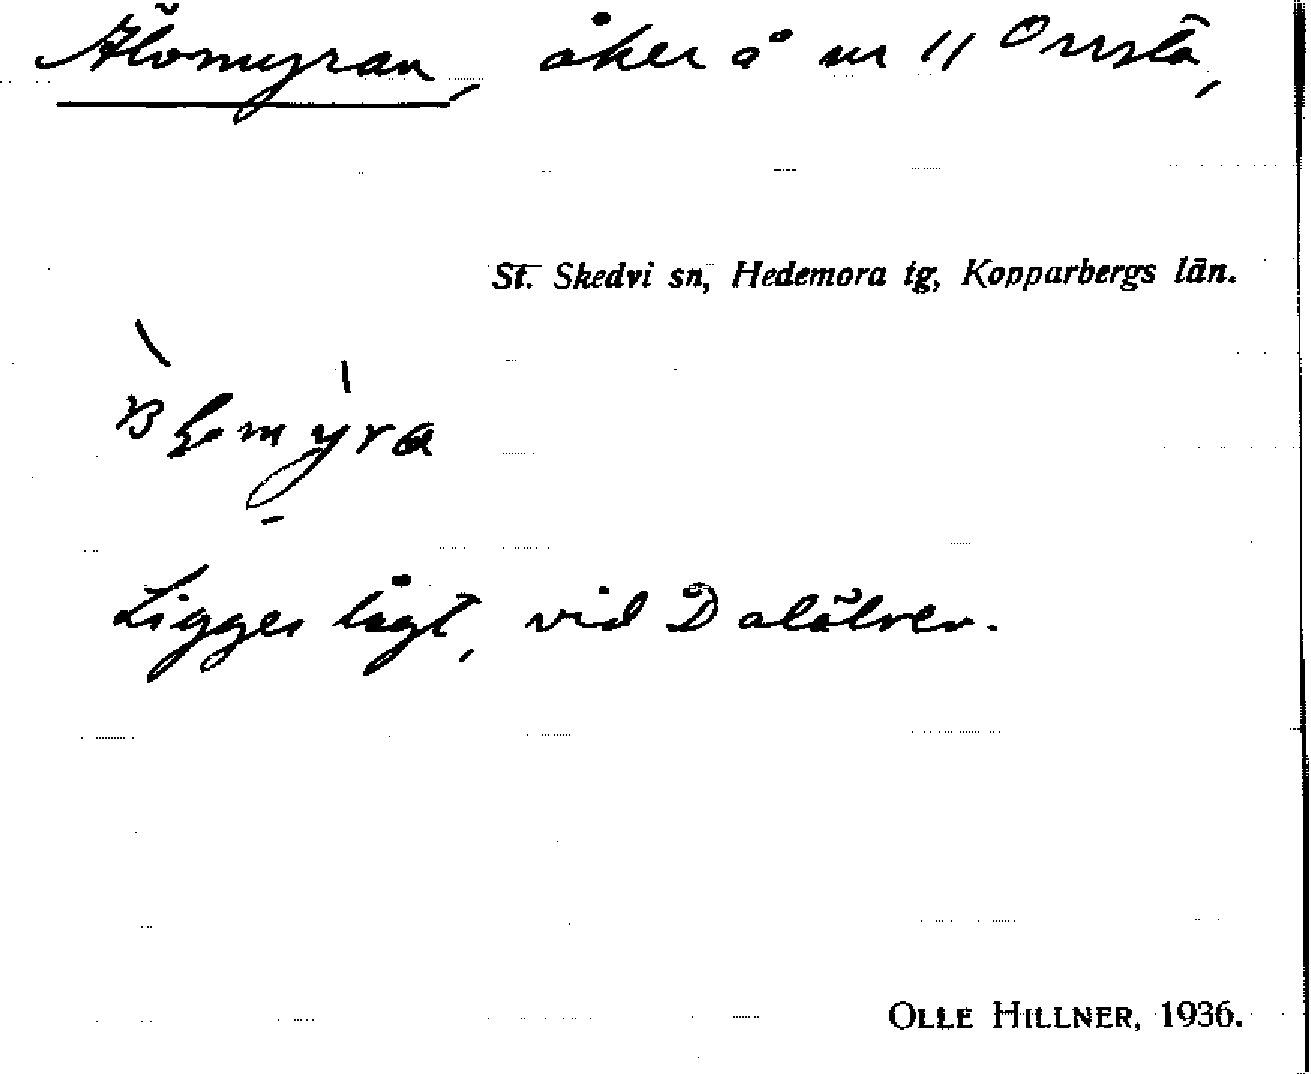 Älvmyran, åker å nr 11 Orrsta,
St. Skedvi sn, Hedemora tg, Kopparbergs län.
Ligger lågt, vid Dalälven.
OLLE HILLNER, 1936.